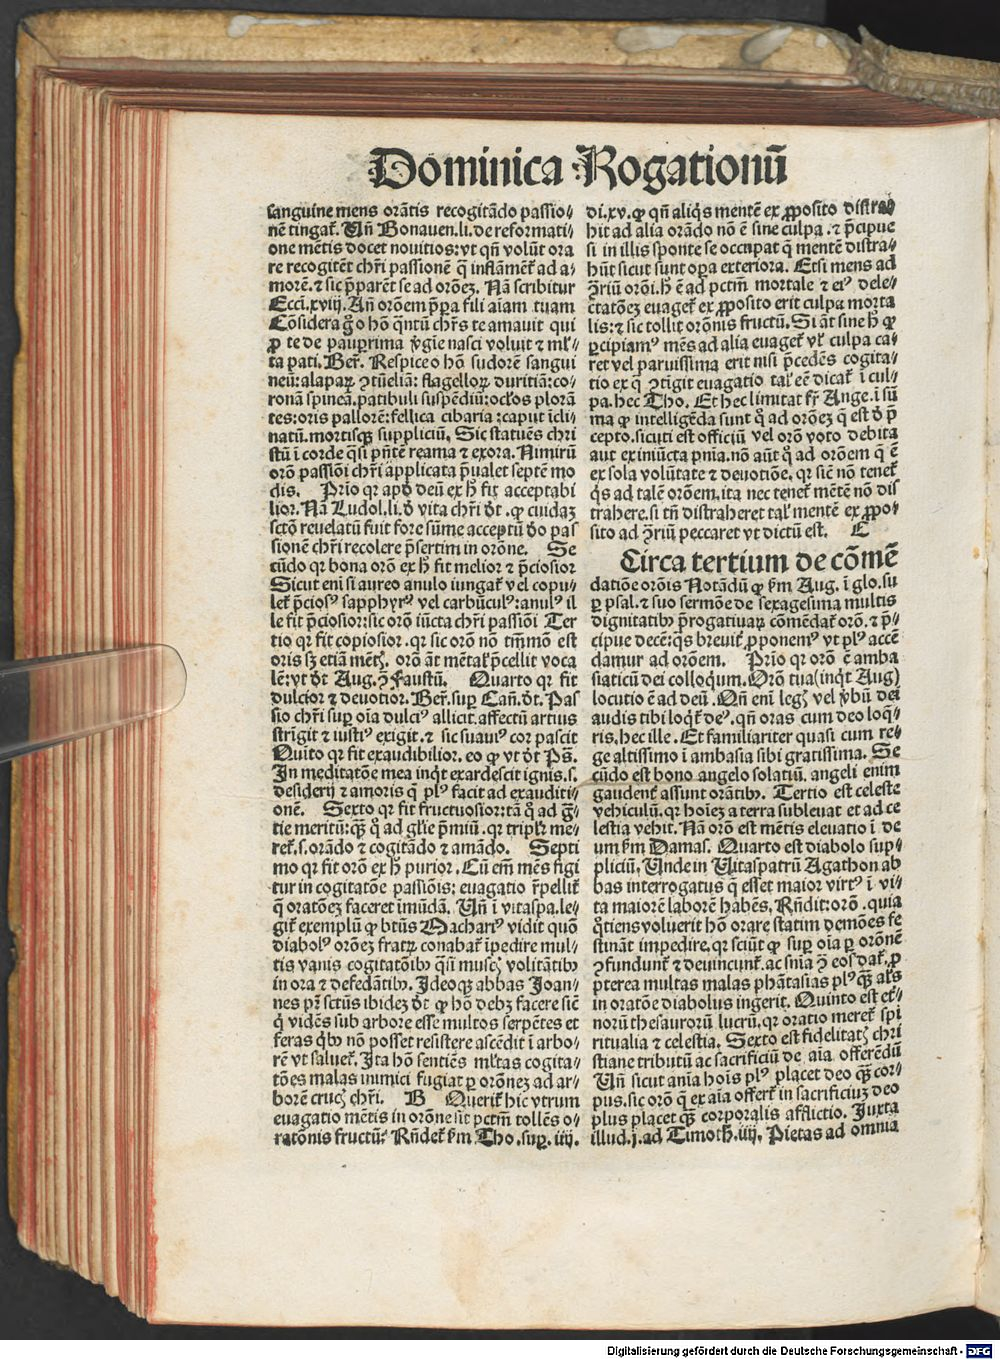 Dominica Rogationū
sanguine mens orātis recogitādo passio⸗
nē tingat᷑. Uñ Bonauen. li. de reformati⸗
one mētis docet nouitios: vt qñ volūt ora
re recogitēt chr̄i passionē q̄ inflāmēt᷑ ad a⸗
morē. ⁊ sic p̄parēt se ad orōeꝫ. Nā scribitur
Ecci. xviij. Añ orōem p̄para fili aīam tuam
Cōsidera hō q̄ntū chr̄s te amauit qui
ꝓ te de pauꝑrima v̓gie nasci voluit ⁊ ml̓⸗
ta pati. Ber̄. Respice o hō sudorē sangui
neū: alapaꝝ ꝯtūeliā: flagelloꝝ duritiā: co⸗
ronā spineā. patibuli suspēdiū: oclōs plorā
tes: oris pallorē: fellica cibaria: caput īcli⸗
natū. mortisqꝫ suppliciū. Sic statuēs chri
stū ī corde q̄si p̄ntē reama ⁊ exora. Nimirū
orō passiōi chr̄i applicata p̄ualet septē mo
dis. Prīo qꝛ apd̓ deū ex h̓ fit acceptabi
lior. Nā Ludol. li. d̓ vita chr̄i d̓t. ꝙ cuidaꝫ
sctō reuelatū fuit fore sūme acceptū d̓o pas
sionē chr̄i recolere p̄sertim in orōne. Se
cūdo qꝛ bona orō ex h̓ fit melior ⁊ p̄ciosior
Sicut eni si aureo anulo iungat᷑ vel copu⸗
let᷑ p̄ciosꝰ sapphyrꝰ vel carbūculꝰ: anulꝰ il
le fit p̄ciosior: sic orō iūcta chr̄i passiōi Ter
tio qꝛ fit copiosior. qꝛ sic orō nō tm̄mō est
oris sꝫ etiā mētꝭ. orō āt mētal̓ p̄cellit voca
lē: vt d̓t Aug. ꝯ̄ Faustū. Quarto qꝛ fit
dulcior ⁊ deuotior. Ber̄. suꝑ Cañ. d̓t. Pas
sio chr̄i suꝑ oīa dulciꝰ allicit. affectū artius
strīgit ⁊ iustiꝰ exigit. ⁊ sic suauiꝰ cor pascit
Quīto qꝛ fit exaudibilior. eo ꝙ vt d̓t Ps̄.
In meditatōe mea inq̓t exardescit ignis. s.
desiderij ⁊ amoris q̄ plꝰ facit ad exauditi⸗
onē. Sexto qꝛ fit fructuosior: tā q̓ ad gr̄⸗
tie meritū: qꝫ̄ q̓ ad gl̓ie p̄miū. qꝛ tripl̓r me⸗
ret᷑. s. orādo ⁊ cogitādo ⁊ amādo. Septi
mo qꝛ fit orō ex h̓ purior. Cū em̄ mēs figi
tur in cogitatōe passiōis: euagatio r̄pellit᷑
q̄ oratōeꝫ faceret īmūdā. Uñ ī vitaspa. le⸗
git᷑ exemplū ꝙ btūs Machariꝰ vidit quō
diabolꝰ orōeꝫ fratꝝ conabat᷑ īpedire mul⸗
tis vanis cogitatōibꝰ q̄si muscꝭ volitātibꝰ
in ora ⁊ defedātibꝰ. Ideoqꝫ abbas Joan⸗
nes pr̄ sctūs ibideꝫ d̓t ꝙ hō debꝫ facere sic̄
q̓ vidēs sub arbore esse multos serpētes et
feras q̓bꝰ nō posset resistere ascēdit ī arbo⸗
rē vt saluet᷑. Ita hō sentiēs ml̓tas cogita⸗
tōes malas inimici fugiat ꝑ orōneꝫ ad ar⸗
borē crucꝭ chr̄i. B Querit᷑ hic vtrum
euagatio mētis in orōne sit pctm̄ tollēs o⸗
ratōnis fructū: Rñdet᷑ ẜm Tho. suꝑ. iiij.
di. xv. ꝙ qñ aliq̓s mentē ex ꝓposito distra⸗
hit ad alia orādo nō ē sine culpa. ⁊ p̄cipue
si in illis sponte se occupat q̄ mentē distra⸗
hūt sicut sunt oꝑa exteriora. Etsi mens ad
ꝯ̄riū orōi. h̓ ē ad pctm̄ mortale ⁊ eiꝰ dele⸗
ctatōeꝫ euaget᷑ ex ꝓposito erit culpa morta
lis: ⁊ sic tollit orōnis fructū. Si āt sine h̓ ꝙ
ꝑcipiamꝰ mēs ad alia euaget᷑ vl̓ culpa ca⸗
ret vel paruissima erit nisi p̄cedēs cogita⸗
tio ex q̄ ꝯtīgit euagatio tal̓ eē dicat᷑ ī cul⸗
pa. hec Tho. Et hec limitat fr̄ Ange. ī sū
ma ꝙ intelligēda sunt q̓ ad orōeꝫ q̄ est d̓ p̄
cepto. sicuti est officiū vel orō voto debita
aut ex iniūcta pnīa. nō aūt q̓ ad orōem q̄ ē
ex sola volūtate ⁊ deuotiōe. qꝛ sic̄ nō tenet᷑
q̓s ad talē orōem. ita nec tenet᷑ mētē nō dis
trahere. si tñ distraheret tal̓ mentē ex ꝓpo⸗
sito ad ꝯ̄riū peccaret vt dictū est. E
Circa tertium de cōmē
datiōe orōis Notādū ꝙ ẜm Aug. ī glo. su
ꝑ psal. ⁊ suo sermōe de sexagesima multis
dignitatibꝰ p̄rogatiuaꝝ cōmēdat᷑ orō. ⁊ p̄⸗
cipue decē: q̓s breuit᷑ ꝓponemꝰ vt plꝰ accē
damur ad orōem. Prīo qꝛ orō ē amba
siaticū dei colloq̓um. Orō tua (inq̓t Aug)
locutio ē ad deū. Qñ eni legꝭ vel v̓bū dei
audis tibi loq̓t᷑ deꝰ. qñ oras cum deo loq̓⸗
ris. hec ille. Et familiariter quasi cum re⸗
ge altissimo ī ambasia sibi gratissima. Se
cūdo est bono angelo solatiū. angeli enim
gaudent᷑ assunt orātibꝰ. Tertio est celeste
vehiculū. qꝛ hoīeꝫ a terra subleuat et ad ce
lestia vehit. Nā orō est mētis eleuatio ī de
um ẜm Damas. Quarto est diabolo sup⸗
pliciū. Unde in Uitaspatrū Agathon ab
bas interrogatus q̄ esset maior virtꝰ ī vi⸗
ta maiorē laborē habēs. Rñdit: orō. quia
q̓tiens voluerit hō orare statim demōes fe
stināt impedire. qꝛ sciūt ꝙ suꝑ oīa ꝑ orōnē
ꝯfundunt᷑ ⁊ deuincunt᷑. ac snīa ꝯ̄ eos dat᷑. ꝓ
pterea multas malas phātasias plꝰ qꝫ̄ al̓s
in oratōe diabolus ingerit. Quinto est et᷑⸗
norū thesaurorū lucrū. qꝛ oratio meret᷑ spi
ritualia ⁊ celestia. Sexto est fidelitatꝭ chri
stiane tributū ac sacrificiū de aīa offerēdū
Uñ sicut anīa hoīs plꝰ placet deo qꝫ̄ cor⸗
pus. sic orō q̄ ex aīa offert᷑ in sacrificiuꝫ deo
plus placet qꝫ̄ corporalis afflictio. Juxta
illud. j. ad Timoth̓. iiij. Pietas ad omnia
Digitalisierung gefördert durch die Deutsche Forschungsgemeinschaft - DFG